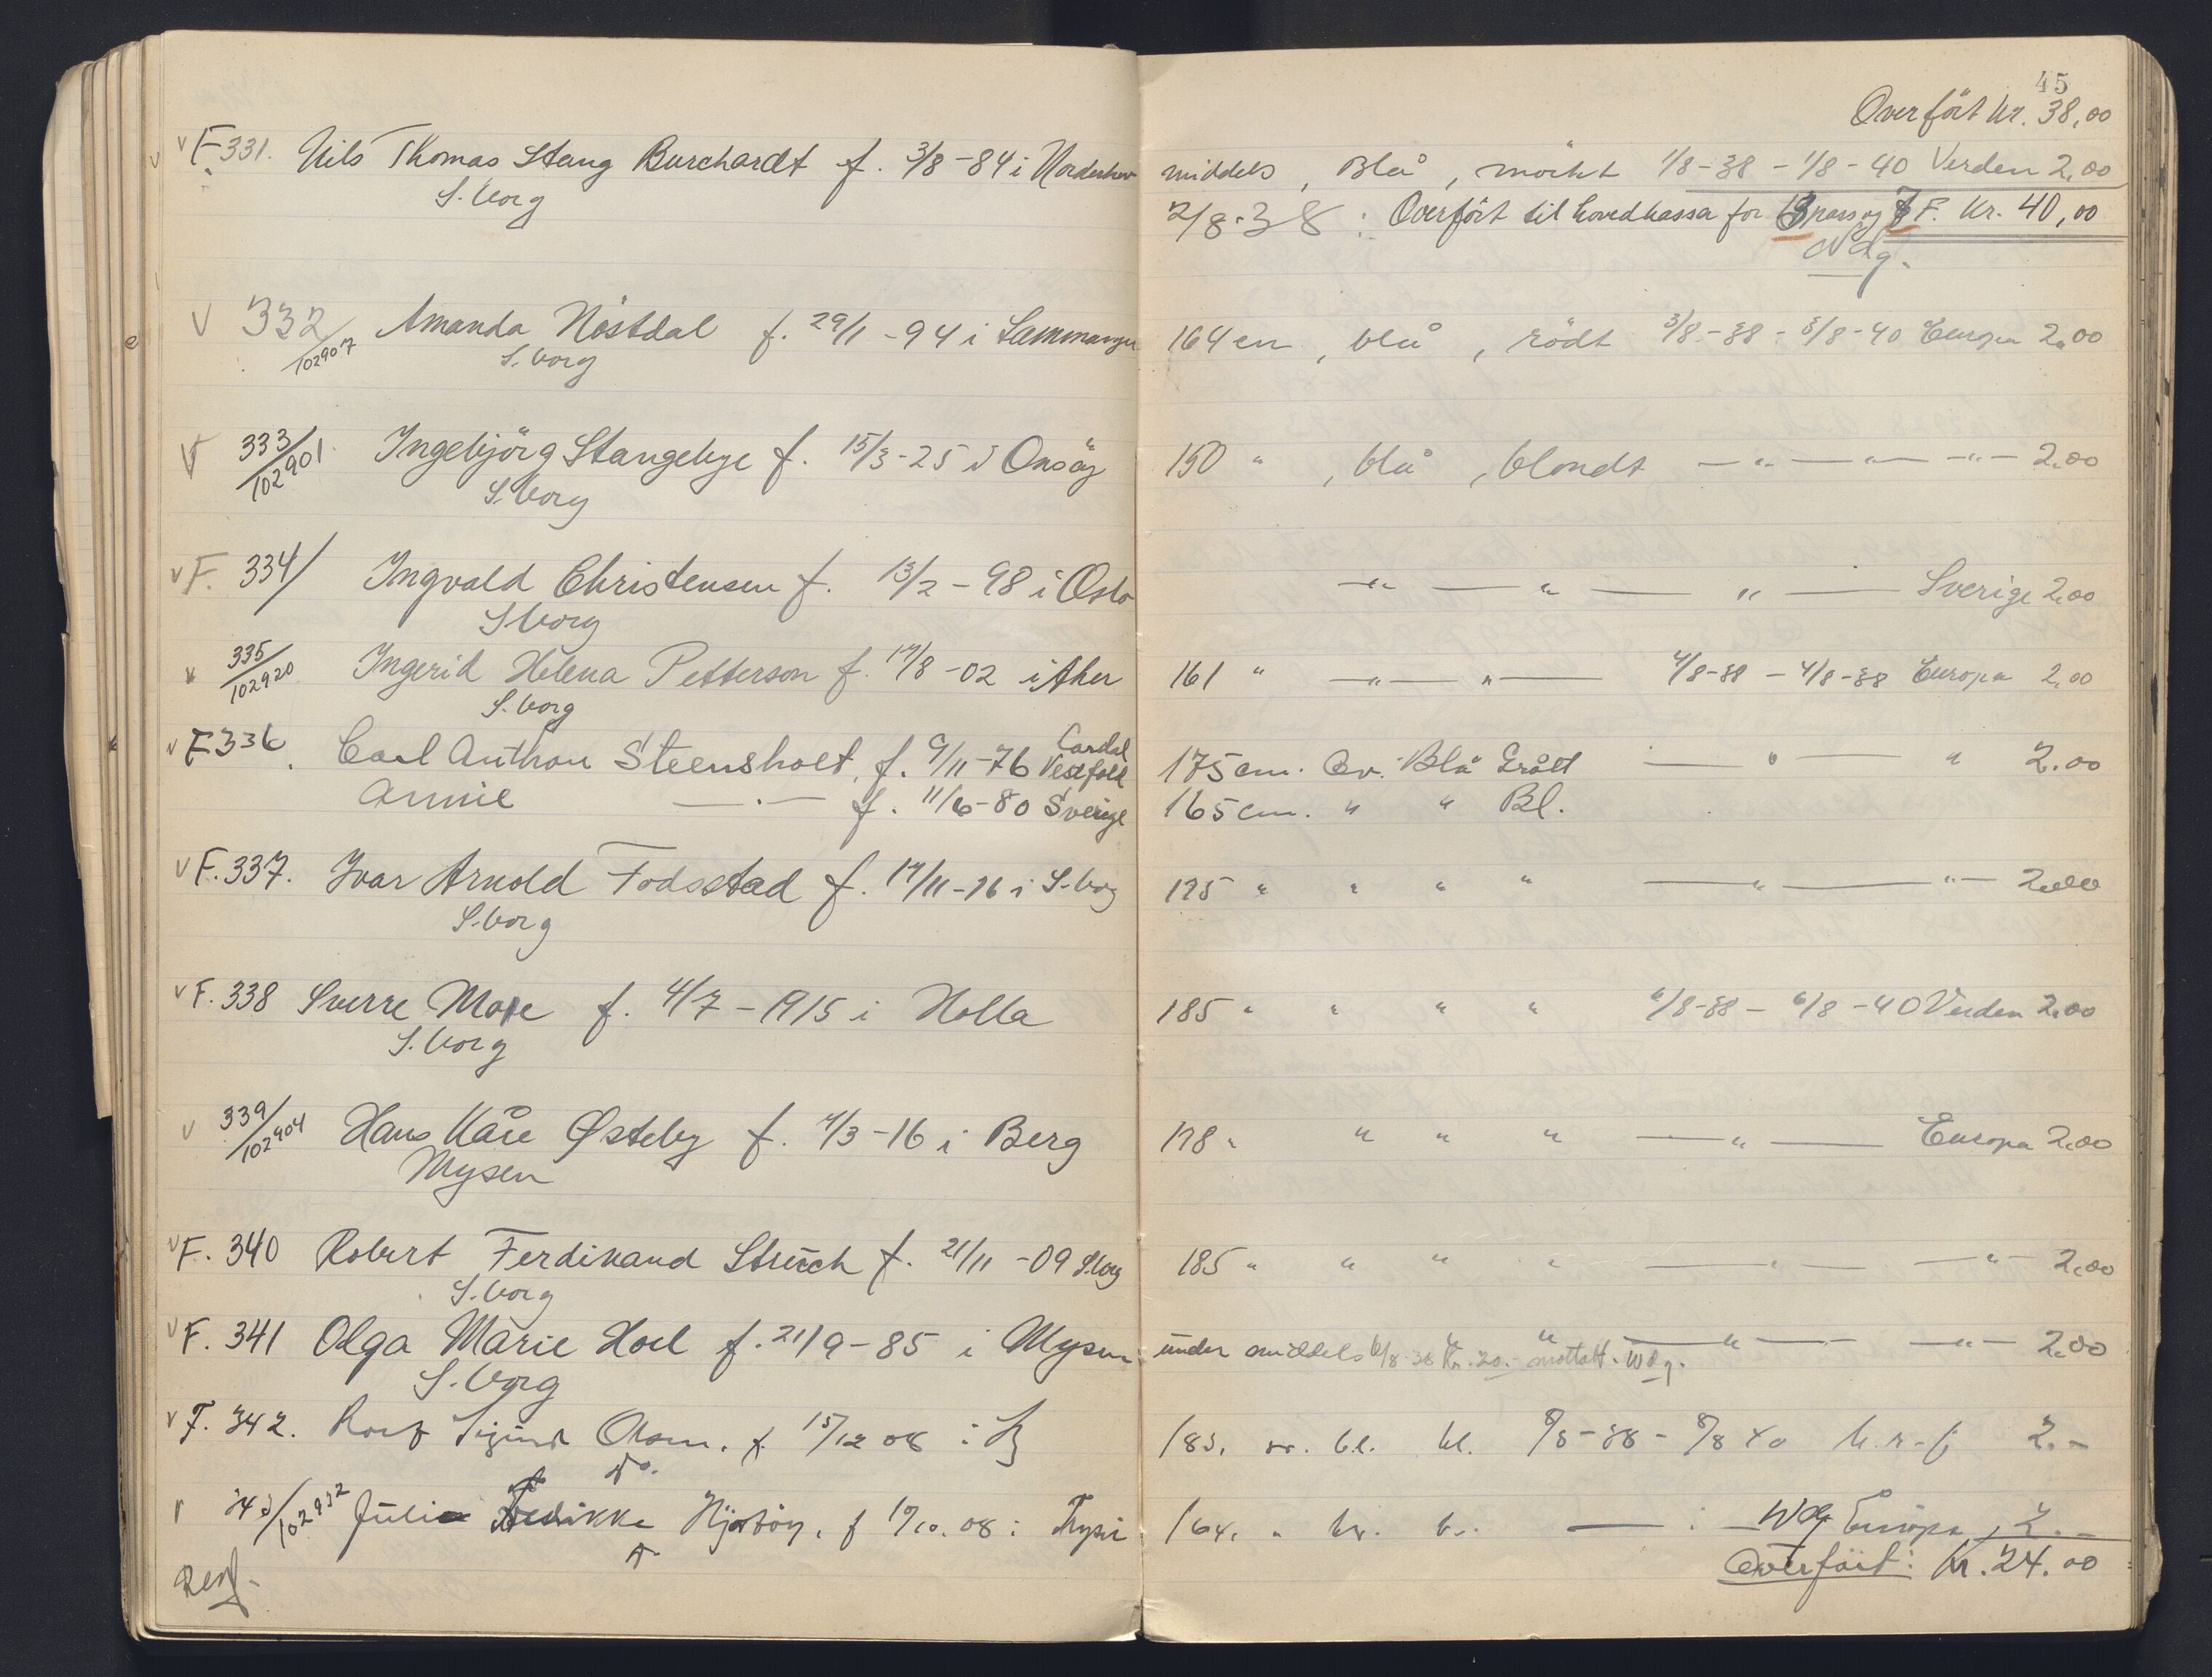 45
Overfört kr. 38,00
v F 331. Nils Thomas Stang Burchardt f. 3/8-84 i Norderhov middels, Blå, mörkt 1/8-38 - 1/8-40 Verden 2,00
S.borg 2/8-38: Overfört til hovedkassa for pass og F. Kr. 40,00
Wdg.
v 332/102907 Amanda Nöstdal f. 29/11-94 i 164 cm, blå, rödt 3/8-38 - 3/8-40 Europa 2,00
S.borg
v 333/102901 Ingebjörg Stangebye f. 15/3-25 i Onsöy 150 " , blå, blondt —"— —"— —"— 2.00
S.borg
v F. 334/ Ingvald Christensen f. 13/2-98 i Oslo —"— " — " — Sverige 2,00
S.borg
v 335/102920 Ingerid Helena Petterson f. 17/8-02 i Aker 161 " —"— "— 4/8-38 - 4/8-38 Europa 2,00
S.borg
v F 336. Carl Anthon Steensholt, f. 9/11-76 Vestfold 175 cm. Ov. Blå Grått — " — " 2.00
Annie —.— f. 11/6-80 Sverige 165 cm. " " Bl.
v F. 337. Ivar Arnold Fodsstad f. 17/11-16 i S-borg 175 " " " " —"— "— 2.00
S.borg
v F. 338 Sverre Moe f. 4/7-1915 i Holla 185 " " " " 6/8-38 - 6/8-40 Verden 2.00
S.borg
v 339/102904 Hans Kåre Østeby f. 7/3-16 i Berg 178 " " " " —"— Europa 2.00
Mysen
v F. 340 Robert Ferdinand Struch f. 21/11-09 S.borg 185 " " " " —"— —"— 2.00
S.borg
v F. 341 Olga Marie Hoel f. 21/9-85 i Mysen under middels " " —"— —"— 2.00
S.borg 6/8-38 Kr. 20.- mottatt. Wdg.
v F. 342. Rolf Sigurd Olsen. f. 15/12 08 i 183. bl. bl. 8/8-38 - 8/8 40 2.-
343/102932 Julie Fredrikke f 08 i Trysil 164. " — : — Wdg Europa 2.-
Overfört: Kr. 24.00